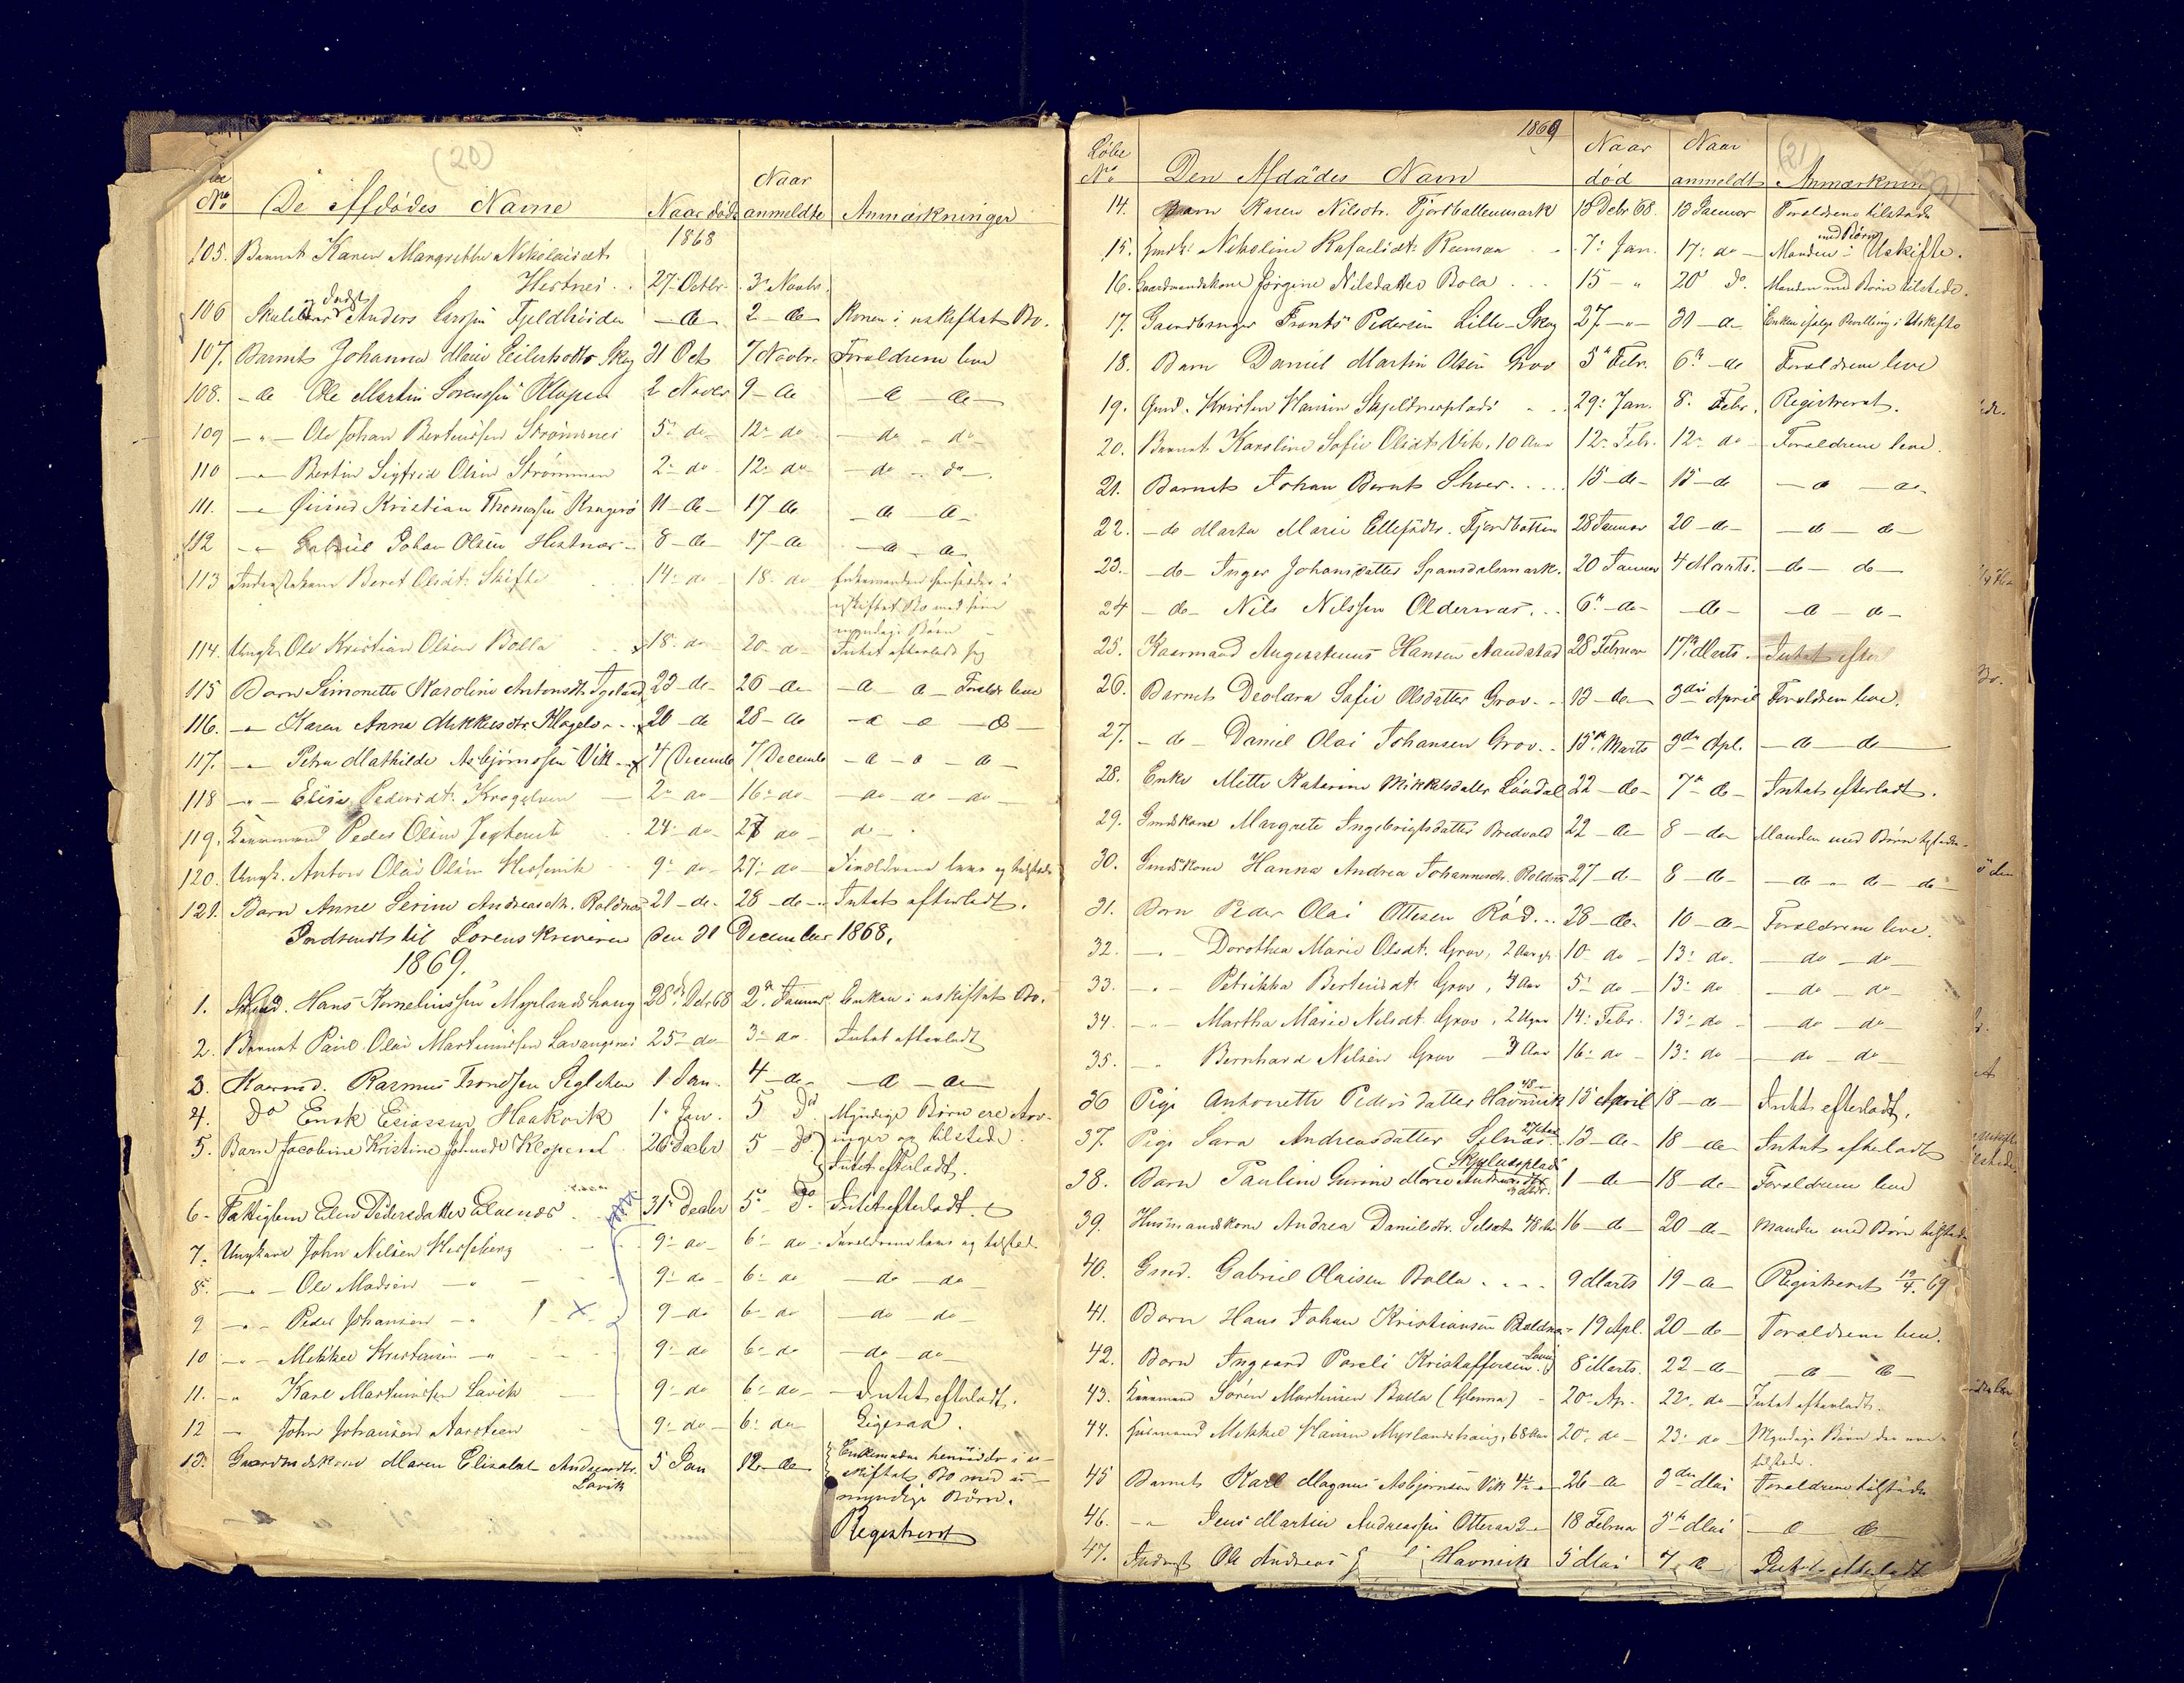 (20)
No De Afdødes Navne Naar døde Naar anmeldte Anmærkninger
1868
105. Barnet Karen Margrethe Nikolaisdt.
Hestnes 27- Octbr. 3- Novbr.
106 Skolelærer og Indst Anders Larssen Fjeldheiden - do - 2 - do Konen i uskiftet Bo.
107. Barnets Johanna Marie Eilertsdttr. Skog 31 Oct 7 Novbr. Forældrene leve
108. - do Ole Martin Sørenssen Klopen 2 Novbr 9 - do - do - do -
109 - " - Ole Johan Berteussen Strømsnes 5- do - 12- do - do - do
110 - " - Bertin Sigfrid Olsen Strømmen 2- do - 12- do - do - do -
111. - " Øivind Kristian Thomassen Kragerø 11 - do - 17 do - do - do -
112 - " Gabriel Johan Olsen Hestnes - 8 - do - 17 - do - do - do
113 Beret Olsdt. Skifte 14- do - 18- do Enkemanden hensidder i
uskiftet Bo med sine
myndige Børn
114. Ungk. Ole Kristian Olsen Bolla x 18- do - 20- do - Intet efterladt sig
115 Barn Simonette Karoline Antonsdtr. 23 - do - 26 - do - do - do - Foreldr. leve
116. - " Karen Anna Mikkelsdtr. 20 - do 28 - do - do - do - do -
117. - " Petra Mathilde Asbjørnssen Vik x 4 Decembr 7 Decembr - do - do - do -
118 - " - Elisa Pedersdt. Krogelven 2- do - 16- do - do - do - do -
119. Kaarmand Peder Olsen 24- do - 27 do - do -
120. Ungk. Anton Olai Olsen Hessevik 9- do - 27- do - Forældrene leve og tilstede
121. Barn Anne Serine Andreasdtr. Roldnes 21 - do - 28 - do - Intet efterladt.
Indsendt til Sorenskriveren den 31 December 1868.
1869.
1. Hans Kornelinssen Myrlandshaug 28de Debr 68 2de Januar. Enken i uskiftet Bo.
2. Barnet Paul Olai Martinussen Lavangsnes 25- do 3- do Intet efterladt
3. Kaarmd. Rasmus Trondsen 1 Jan. 4 - do - do - do -
4. Do Enok Esiassen Haakvik 1- Jan. 5 Do Myndige Børn ere Arv-
5. Barn Jacobine Kristine Johnsdt Kloperal 26 Decbr 5 - Do inger og tilstede.
Intet efterladt.
6 - Fattiglem Elen Pedersdatter Elvenes 31- Decbr 5- Do Intet efterladt.
7. Ungkarl John Nilsen Hessberg 9- do - 6- do - Forældrene leve og tilsted.
8. - " - Ole Madsen - " - 9- do - 6- do - do - do -
9 - " - Peder Johansen - " 1 x 9 - do 6- do - do - do -
10 - " - Mikkel Kristensen - " 9- do 6- do - do - do -
11. - " Karl Martinussen Lavik 9- do 6- do - Intet efterladt.
12 - " John Johansen Aarsteen 9- do - 6- do - Ligesaa.
13. Gaardmdskone Maren Elisabet Andreasdtr. 5 Jan 12 - do - Enkemanden hensidder i u-
Lavik skiftet Bo med u-
myndige Børn.
Registreret
1869
(21)
Løbe No Den Afdødes Navn Naar død Naar anmeldt Anmærkning
14. Barn Karen Nilsdtr. Fjordbottenmark 18 Debr 68. 13 Januar Forældrene tilstede
15. Gmdk: Nikoline Rafaelsdt: Ramsaa 7: Jan. 17: do - Manden med Børn i Uskifte.
16. Gaardmandskone Jørgine Nilsdatter Bola 15 - " 20 do. Manden med Børn tilstede.
17. Gaardbruger Tronts Pedersen Lille-Skog 27 - " - 31 - do Enken ifølge Bevilling i Uskifte
18. Barn Daniel Martin Olsen Grov 3- Febr. 6- - do Forældrene leve
19. Gmd. Kristen Hansen Skjeldnesplads 29: Jan. 8. Febr. Registreret.
20. Barnet Karoline Sofie Olsdt Vik, 10 Aar 12- Febr. 12- do - Forældrene leve.
21. Barnets Johan Bernts 15 - do - 15 - do - do - do -
22. - do Marta Marie Ellefsdtr. Fjordbotten 28 Januar 20 - do - - do - do -
23. - do - Inger Johansdatter Spansdalsmark. 20 Januar 4 Marts. - do - do -
24 - do - Nils Nilssen Oldernes. . . 6- - do - - do - - do - do -
25. Kaarmand Augustinus Hansen Aandstad 28 Februar 17de Marts. Intet efter
26. Barnets Deolara Sofie Olsdatter Grov. 13 - do - 3die April Forældrene leve.
27. - do - Daniel Olai Johansen Grov. . 15de Marts 3die Apl. - do - do
28. Enke Mette Katarine Mikkelsdatter Løvdal 22 - do - 7de - do - Intet efterladt.
29. Gmdskone Margrete Ingebrigtsdatter Bredvold 22 - do - 8 - do Manden med Børn tilstede
30. Gmdskone Hanna Andrea Johannesdr. Roldnes 27 - do - 8 - do - - do - do - do
31. Barn Peder Olai Ottesen Rød. . 28 - do - 10 - do - Forældrene leve.
32. - " - Dorothea Marie Olsdt. Grov, 2 Aar gl. 10- do - 13: do. - do - do
33. - " - Petrikka Berteusdt Grov, 4 Aar 5- do - 13- do - do - do -
34. - " - Martha Marie Nilsdt. Grov, 2 Uger 14: Febr. 13- do - - do - do -
35. - " Bernhard Nilsen Grov - 3 Aar 16: do - 13: do - do - do -
36 Pige Antonette Pedersdatter Havnvik 48 - 15 April 18 - do - Intet efterladt.
37. Pige Sara Andreasdatter Selnes. 27 Aar 13 - do - 18 - do Intet efterladt
38. Barn Pauline Gurine Marie Andreasdtr. Skjelnesplads 1 - do - 18 - do - Forældrene leve
39. Husmandskone Andrea Danielsdtr. Selset 48 Aar 16 - do - 20 - do - Manden med Børn tilstede
40. Gmd. Gabriel Olaisen Bolla 9 Marts 19 - do - Registreret 19/4. 69
41. Barn Hans Johan Kristiansen Roldnes 19 Apl. 20 - do - Forældrene leve.
42. Barn Ingvard Pareli Kristoffersen Lavig 8 Marts. 22 - do - - do - do -
43. Kaarmand Søren Martinsen Bolla (Glenna) - 20- Ap. 22- do - Intet efterladt.
44. Husmand Mikkel Hansen Myrlandshaug, 68 Aar 20- do - 23: do - Myndige Børn der vare
tilstede.
45 Barnets Karl Magnus Asbjørnsen Vik 4 26 - do 3die Mai Forældrene tilstede
46. - " Jens Martin Andreassen Otteraa 2 - 18 Februar 5te Mai - do - do -
47. Indrst Ole Andreas Havnvik 5 Mai 7 - do - Intet efterladt